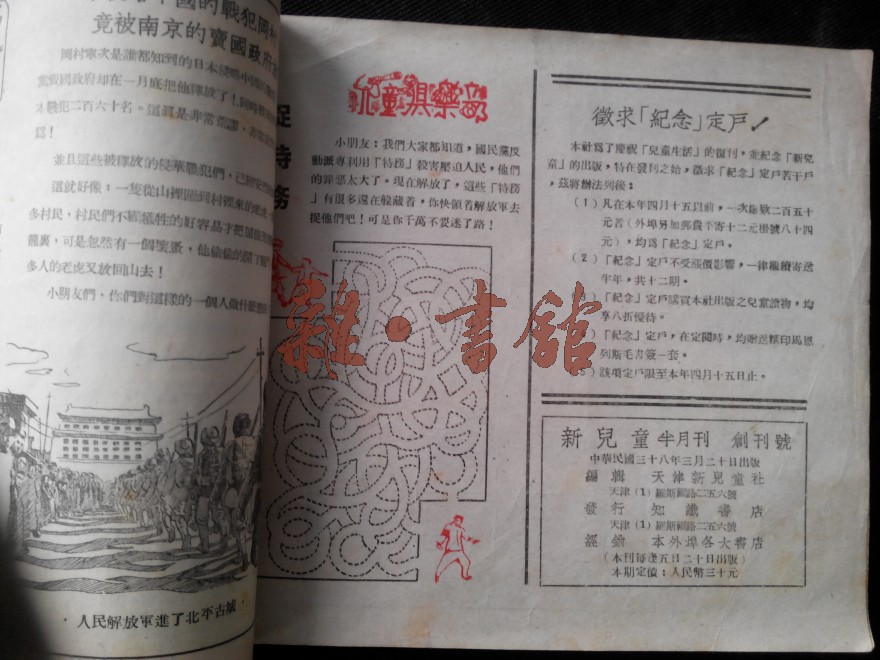 中國的戰犯岡村
竟被南京的賣國政府
岡村寧次是誰都知到的日本侵略中國的
黨賣國政府却在一月底把他釋放了！
本戰犯二百六十名。這眞是非常荒謬，
爲！
並且這些被釋放的侵華戰犯們，已經
這就好像：一隻從山裡闖到村裡來的老虎，
多村民，村民們不顧犧牲的好容易才把這
籠裏，可是忽然有一個壞蛋，他偷偷的開了
多人的老虎又放回山去！
小朋友們、你們對這樣的一個人做什麼
·人民解放軍進了北平古城·
新兒童俱樂部
捉特務
小朋友：我們大家都知道，國民黨反
動派專利用「特務」殺害壓迫人民，他們
的罪惡太大了。現在解放了，這些「特務
」有很多還在躲藏着，你快領着解放軍去
捉他們吧！可是你千萬不要迷了路！
徵求「紀念」定戶！
本社爲了慶祝「兒童生活」的復刊，並紀念「新兒
童」的出版，特在發刊之始，徵求「紀念」定戶若干戶
，茲將辦法列後：
（1）凡在本年四月十五以前，一次繳欵二百五十
元者（外埠另加郵費平寄十二元掛號八十四
元），均爲「紀念」定戶。
（2）「紀念」定戶不受漲價影響，一律繼續寄送
半年，共十二期。
「紀念」定戶購買本社出版之兒童讀物，均
享八折優待。
「紀念」定戶，在定閱時，均贈送精印馬恩
列斯毛書簽一套。
）該項定戶限至本年四月十五日止。
雜·書館
新兒童半月刊 創刊號
中華民國三十八年三月二十日出版
編輯 天津新兒童社
天津（1）羅斯福路二五六號
發行 知識書店
天津（1）羅斯福路二五六號
經銷 本外埠各大書店
（本刊每逢五日二十日出版）
本期定價：人民幣三十元